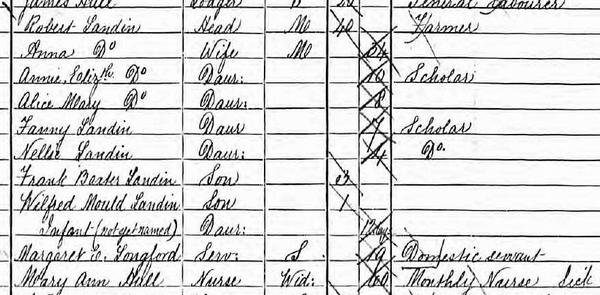 James Hull Lodger
Robert Landin Head M 40 Farmer
Anna Do Wife M 34
Annie Elizth. Do Daur: 10 Scholar
Alice Mary Do Daur: 8
Fanny Landin Daur 7 Scholar
Nellie Landin Daur: 4 Do.
Frank Baxter Landin Son 3
Wilfred Mould Landin Son 1
Infant (not yet named) Daur:
Margaret E. Longford Serv: S 19 Domestic servant
Mary Ann Hull Nurse Wid: 60 Monthly Nurse Sick